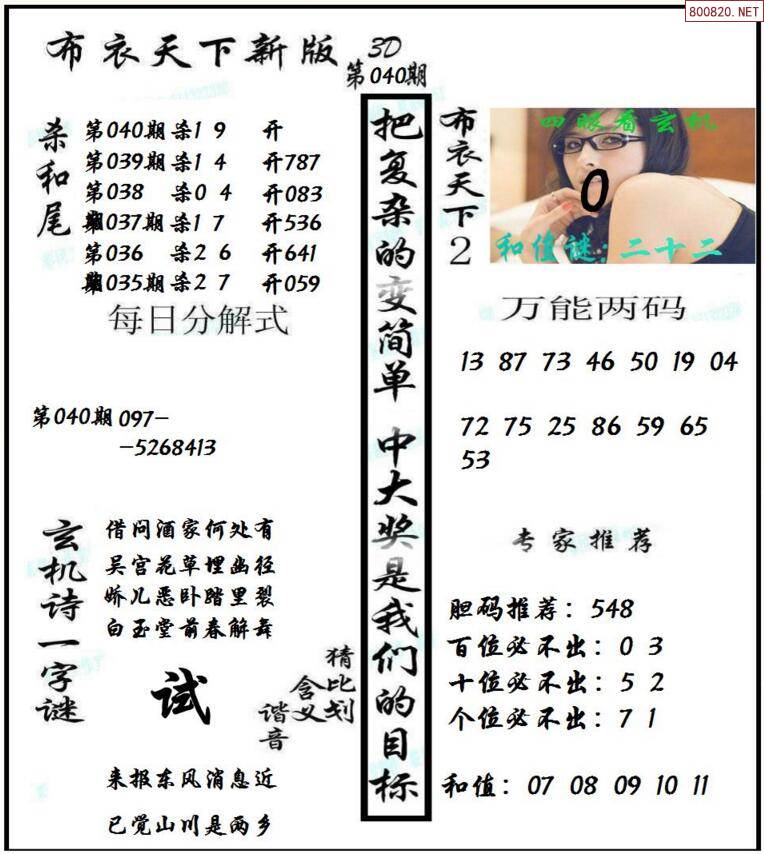 800820.NET
布衣天下新版 3D
第040期
杀和尾
第040期 杀1 9 开
第039期 杀1 4 开787
第038 杀0 4 开083
期037期 杀1 7 开536
第036 杀2 6 开641
期035期 杀2 7 开059
每日分解式
第040期 097-
-5268413
玄机诗一字谜
借问酒家何处有
吴宫花草埋幽径
娇儿恶卧踏里裂
白玉堂前春解舞
试
猜比划
含义
谐音
来报东风消息近
已觉山川是两乡
把复杂的变简单 中大奖是我们的目标
布衣天下2
四眼看玄机
0
和值谜:二十二
万能两码
13 87 73 46 50 19 04
72 75 25 86 59 65
53
专家推荐
胆码推荐:548
百位必不出:0 3
十位必不出:5 2
个位必不出:7 1
和值:07 08 09 10 11